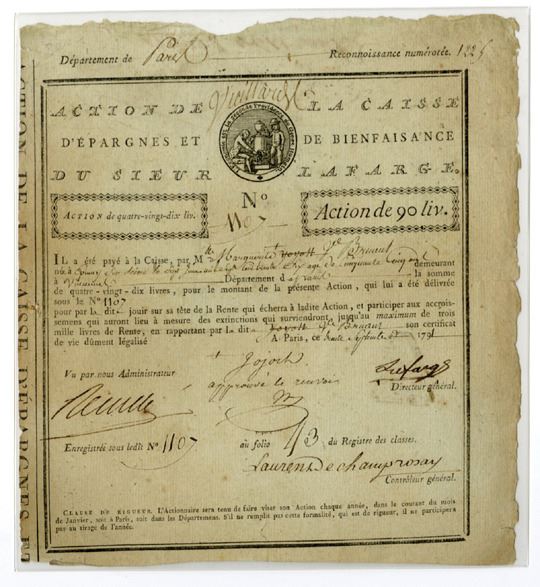 Département de Paris Reconnoissance numérotée. 1225
Vieillard
ACTION DE LA CAISSE
D'ÉPARGNES ET DE BIENFAISANCE
DU SIEUR LAFARGE.
N°
1107
ACTION de quatre-vingt-dix liv.
Action de 90 liv.
IL a été payé à la Caisse, par M Marguerite Vve Bruant
née à demeurant
à Département de la somme
de quatre-vingt-dix livres, pour le montant de la présente Action, qui lui a été délivrée
sous le No 1107
pour par la dite jouir sur sa tête de la Rente qui écherra à ladite Action, et participer aux accrois-
semens qui auront lieu à mesure des extinctions qui surviendront, jusqu'au maximum de trois
mille livres de Rente, en rapportant par la dite Vve Bruant son certificat
de vie dûment légalisé A Paris, ce trente Septembre 1791
Vu par nous Administrateur
approuvé le renvoi
Lafarge
Directeur général.
Enregistrée sous ledit No 1107 au folio 113 du Registre des classes.
Laurent De champrosay
Contrôleur général.
CLAUSE DE RIGUEUR. L'Actionnaire sera tenu de faire viser son Action chaque année, dans le courant du mois
de Janvier, soit à Paris, soit dans les Départemens. S'il ne remplit pas cette formalité, qui est de rigueur, il ne participera
pas au tirage de l'année.
ACTION DE LA CAISSE D'ÉPARGNES E